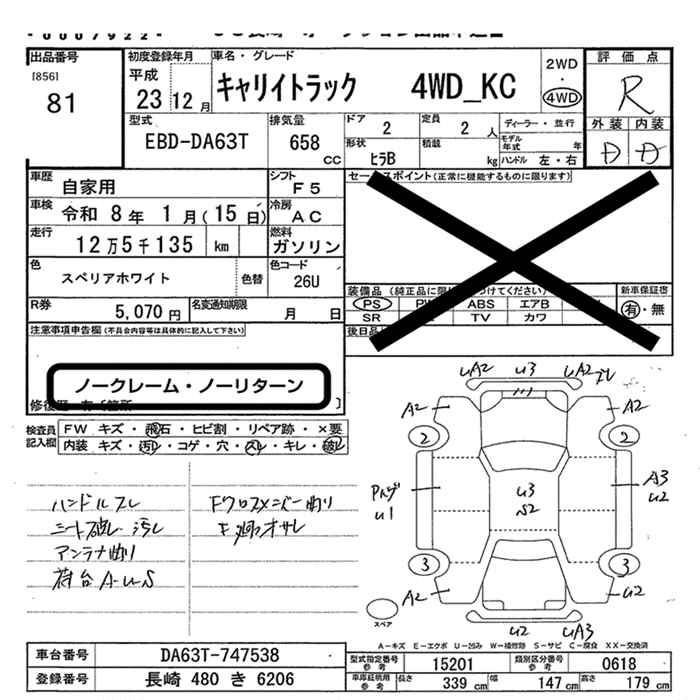 出品番号
[856]
81
初度登録年月
平成
23年12月
車名・グレード
キャリイトラック 4WD_KC
2WD
・
4WD
評価点
R
外装 内装
D D
型式
EBD-DA63T
排気量
658
cc
ドア
2
定員
2 人
形状
ﾋﾗB
積載
kg
ディーラー・並行
モデル年式 年
ハンドル 左・右
車歴
自家用
シフト
F5
車検
令和 8年 1月(15日)
冷房
AC
走行
12万5千135 km
燃料
ガソリン
色
スペリアホワイト
色替
色コード
26U
R券
5,070円
名変通知期限
月 日
セールスポイント(正常に機能するものに限ります)
装備品
PS
ABS エアB
SR TV カワ
新車保証書
有・無
注意事項申告欄(不具合内容等は具体的に記入して下さい)
ノークレーム・ノーリターン
検査員記入欄
FW キズ・飛石・ヒビ割・リペア跡・×要
内装 キズ・汚れ・コゲ・穴・スレ・キレ・破レ
ハンドルスレ
シート破レ 汚レ
アンテナ曲り
荷台A-U-S
Fクロスメンバー曲り
UA2 U3 UA2
A2 A2
2 2
U1
U3
S2
A3
U2
3 3
A2 U2
U2 UA3
スペア
A-キズ E-エクボ U-凹み W-補修跡 S-サビ C-腐食 XX-交換済
車台番号 DA63T-747538
登録番号 長崎 480 き 6206
型式指定番号 参考 15201
類別区分番号 参考 0618
車庫証明用 参考 長さ 339cm 幅 147cm 高さ 179cm